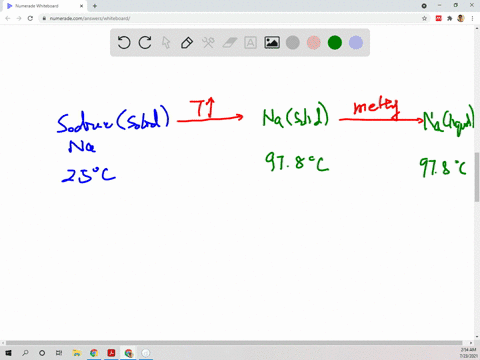 Numerade Whiteboard
numerade.com/answers/whiteboard/
T↑
Sodium (Solid)
Na
25°C
Na (Solid)
97.8°C
melting
Na (liquid)
97.8°C
2:54 AM
7/23/2021